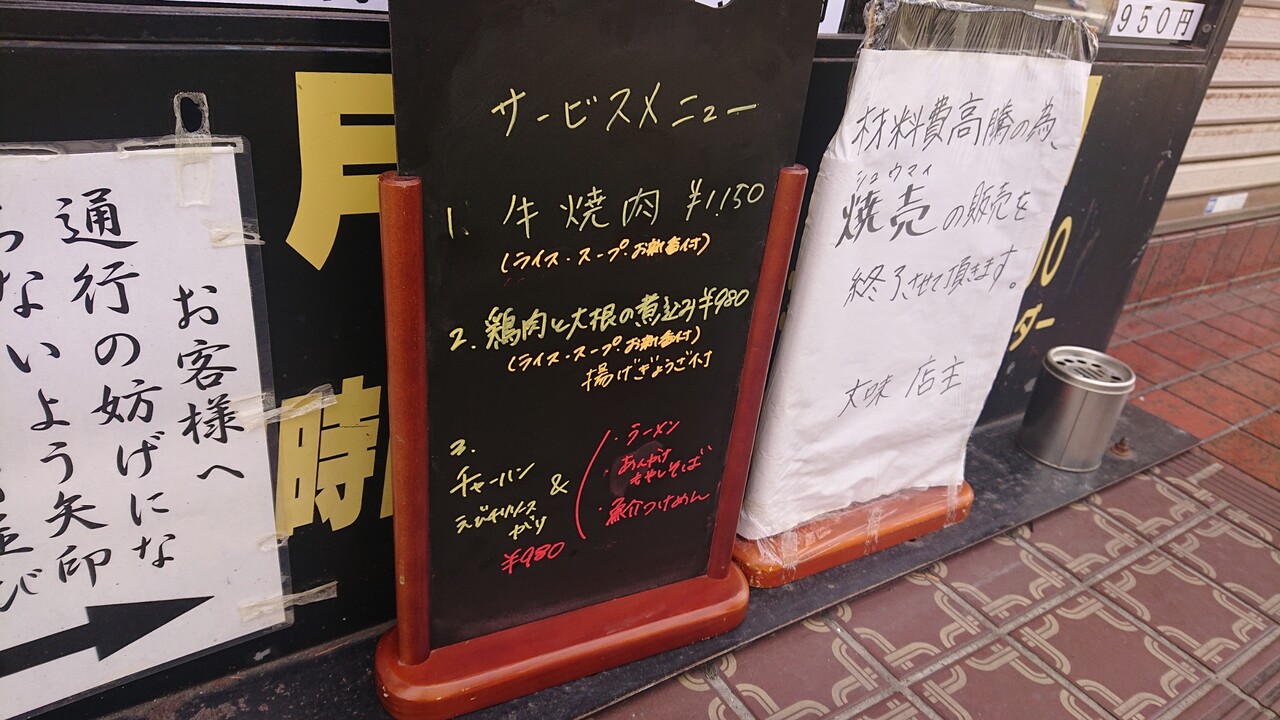 お客様へ
通行の妨げにな
らないよう矢印
時
サービスメニュー
1. 牛焼肉 ¥1,150
(ライス・スープ・お新香付)
2. 鶏肉と大根の煮込み ¥980
(ライス・スープ・お新香付)
揚げぎょうざ付
3.
チャーハン
えびチリソース
がけ
&
・ラーメン
・あんかけ
もやしそば
・魚介つけめん
¥980
950円
材料費高騰の為、
シュウマイ
焼売の販売を
終了させて頂きます。
店主